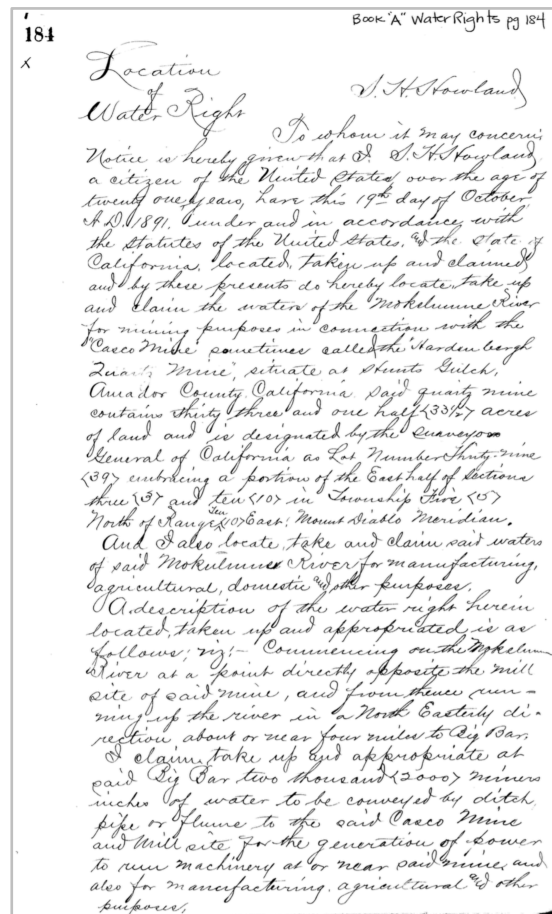 Book "A" Water Rights pg 184
184
x
Location
of
Water Right
S. H. Howland
To whom it may concern;
Notice is hereby given that I. S. H. Howland
a citizen of the United States, over the age of
twenty one years, have this 19th day of October,
A.D. 1891, under and in accordance with
the Statutes of the United States, and the State of
California, located, taken up and claimed
and by these presents do hereby locate, take up
and claim the waters of the Mokelumne River
for mining purposes in connection with the
"Casco Mine" sometimes called the "Hardenbergh
Quartz Mine", situate at Hunts Gulch,
Amador County, California. Said quartz mine
contains thirty three and one half <33½> acres
of land and is designated by the Surveyor
General of California as Lot Number Thirty-nine
<39> embracing a portion of the East half of Sections
three <3> and ten <10> in Township Five <5>
North of Range Ten <10> East; Mount Diablo Meridian.
And I also locate, take and claim said waters
of said Mokelumne River for manufacturing,
agricultural, domestic and other purposes.
A description of the water right herein
located, taken up and appropriated, is as
follows; viz;- Commencing on the Mokelumne
River at a point directly opposite the mill
site of said mine, and from thence run-
ning up the river in a North Easterly di-
rection about or near four miles to Big Bar.
I claim, take up and appropriate at
said Big Bar two thousand <2000> miners
inches of water to be conveyed by ditch,
pipe or flume to the said Casco Mine
and Mill site for the generation of power
to run machinery at or near said mine, and
also for manufacturing, agricultural and other
purposes.